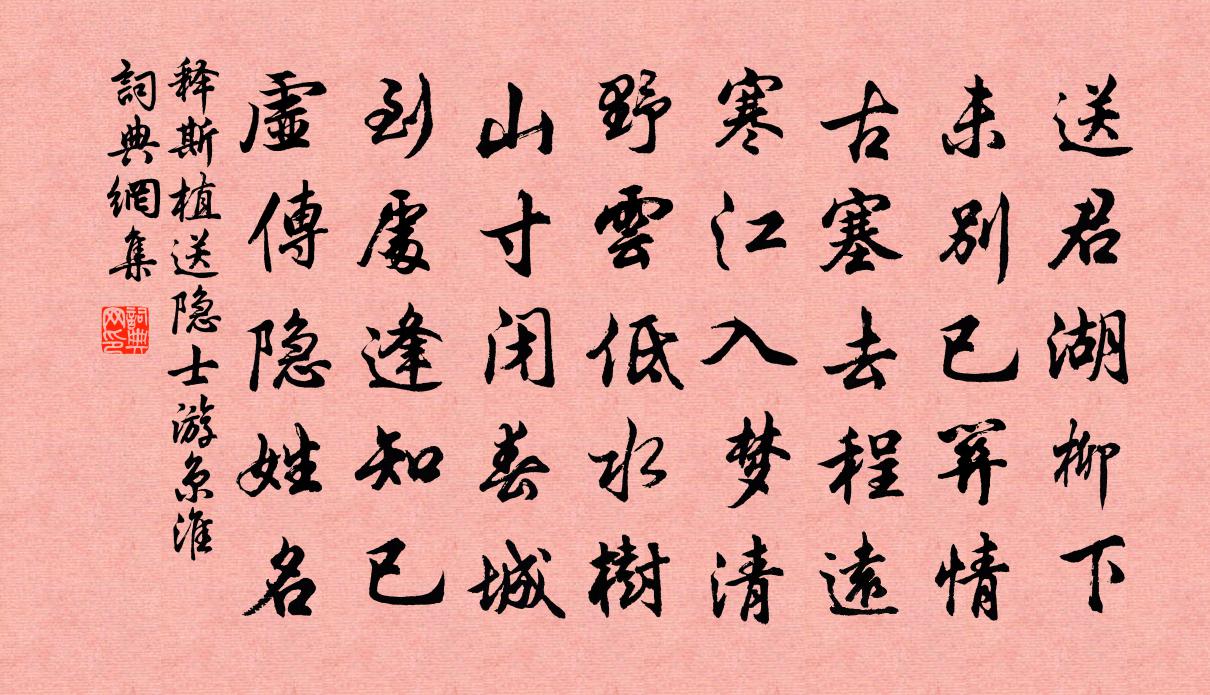 送君湖柳下
未别已关情
古塞去程遠
寒江入梦清
野雲低水樹
山寸闭春城
到處逢知已
虛傳隐姓名
释斯植送隐士游京淮
詞典網集
詞典网印